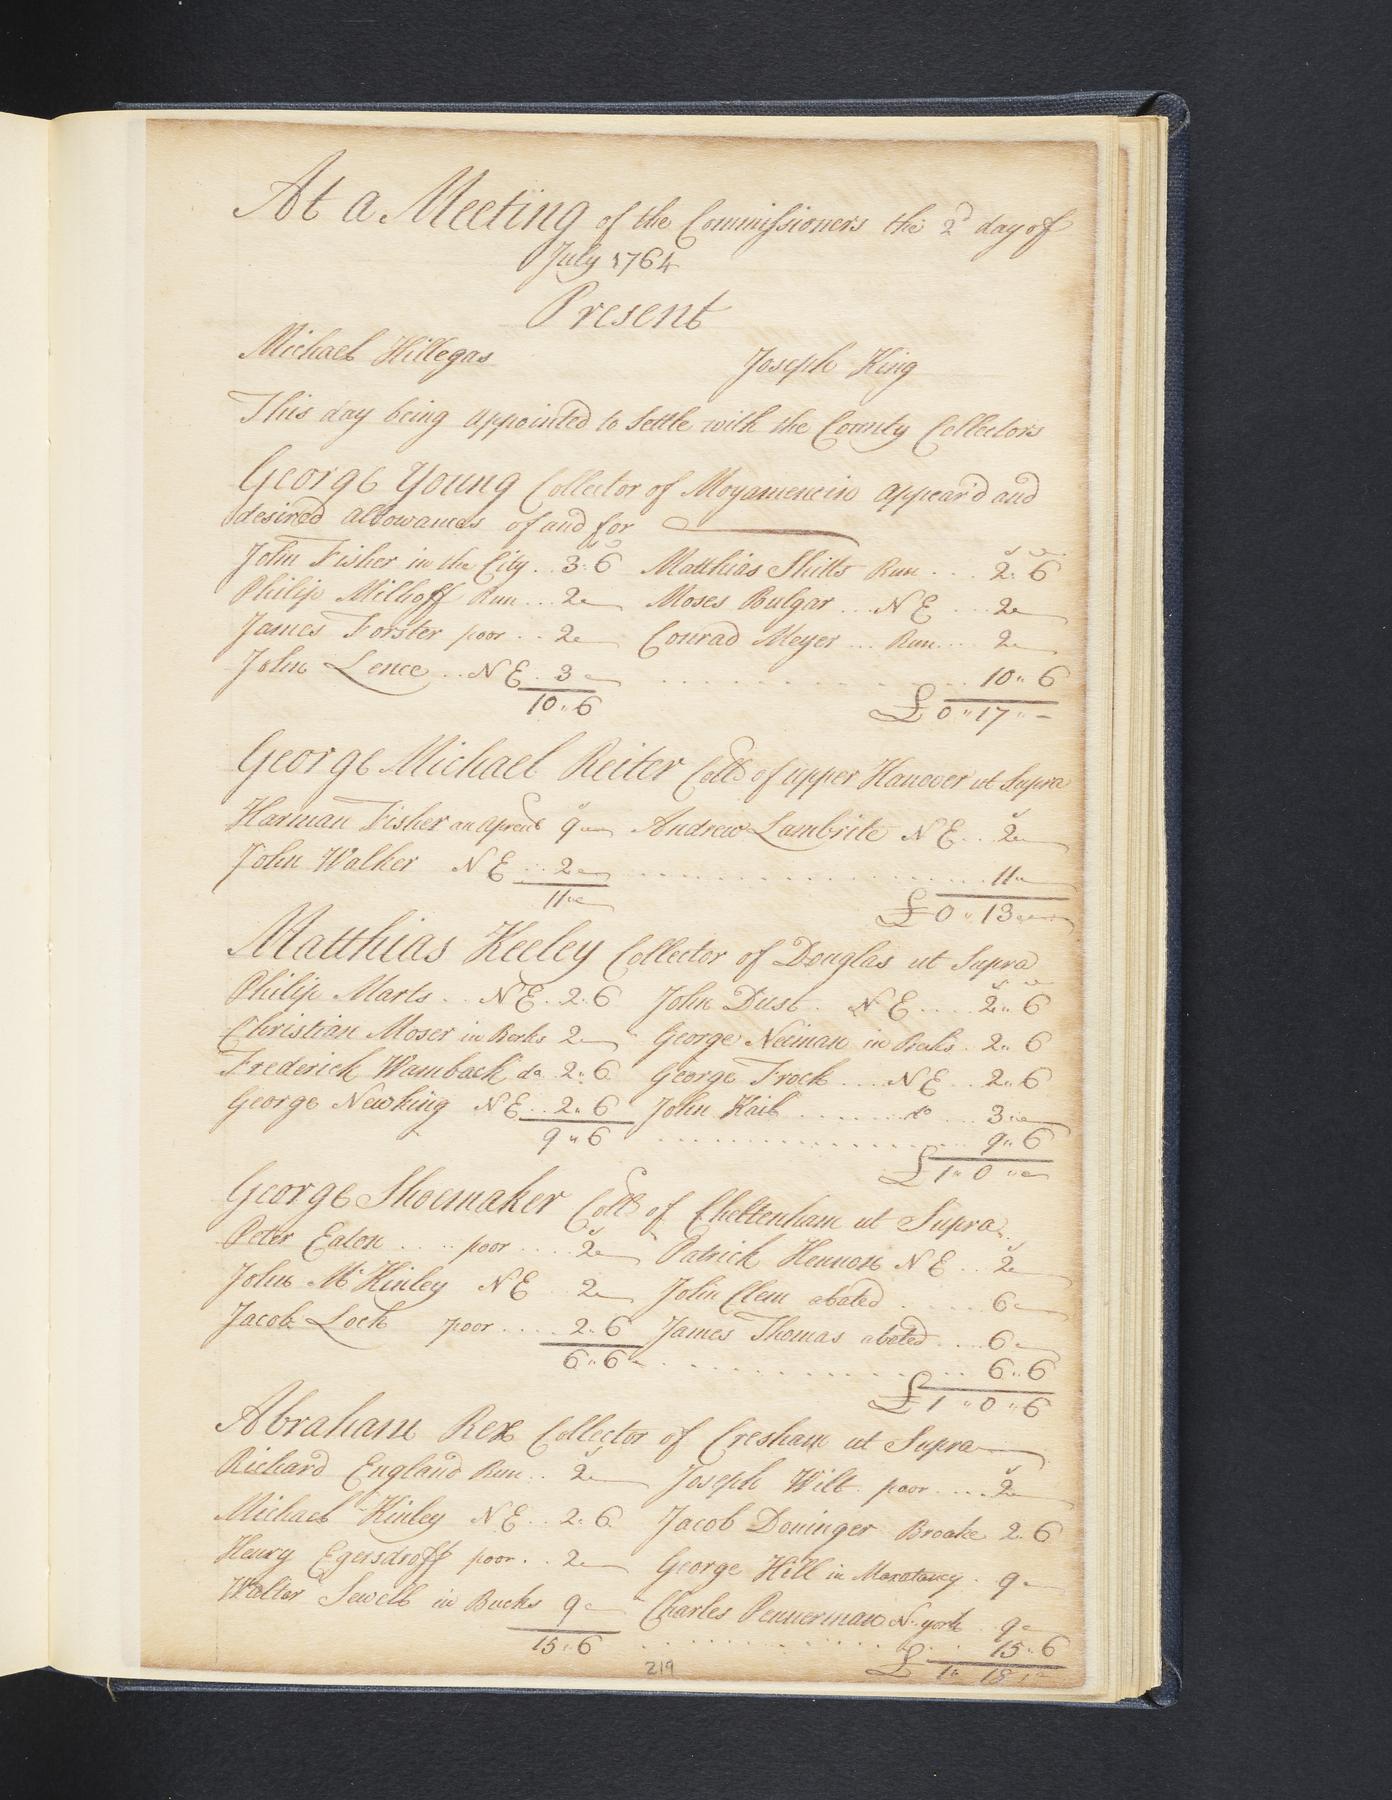 At a Meeting of the Commissioners the 2d day of
July 1764
Present
Michael Hillegas Joseph King
This day being appointed to Settle with the County Collectors
George Young Collector of Moyamencin appear'd and
desired allowances of and for
John Fisher in the City .. 3..6 Matthias Shitts Run ... 2..6
Philip Milhoff Run ... 2 Moses Bulgar ... N E ... 2
James Forster poor .. 2 Conrad Meyer ... Run ... 2
John Lence .. N E . 3 ... 10..6
10..6 £0"17"-
George Michael Reiter Collr of upper Hanover ut Supra
Harman Fisher an aprent 9 Andrew Lambrite N E .. 2
John Walker N E .. 2 ... 11
11 £0"13
Matthias Keeley Collector of Douglas ut Supra
Philip Marts .. N E . 2..6 John Dust . N E .... 2..6
Christian Moser in Berks 2 George Neiman in Berks . 2..6
Frederick Wamback do 2..6 George Frock ... N E .. 2..6
George Newking N E .. 2..6 John Kail ....... do ... 3
9"6 ... 9"6
£1"0
George Shoemaker Collr of Cheltenham ut Supra
Peter Eaton ... poor .... 2 Patrick Hennon N E .. 2
John McKinley N E 2 John Clem abated ..... 6
Jacob Lock poor .... 2..6 James Thomas abated ... 6
6"6 ... 6..6
£1"0"6
Abraham Rex Collector of Cresham ut Supra
Richard England Run .. 2 Joseph Wilt . poor .... 2
Michael Kinley N E .. 2..6 Jacob Doninger Broake 2..6
Henry Egersdroff poor .. 2 George Hill in Maxatawny . 9
Walter Sewell in Bucks 9 Charles Pennerman N. york 9
15"6 ... 15"6
£1" 18
219